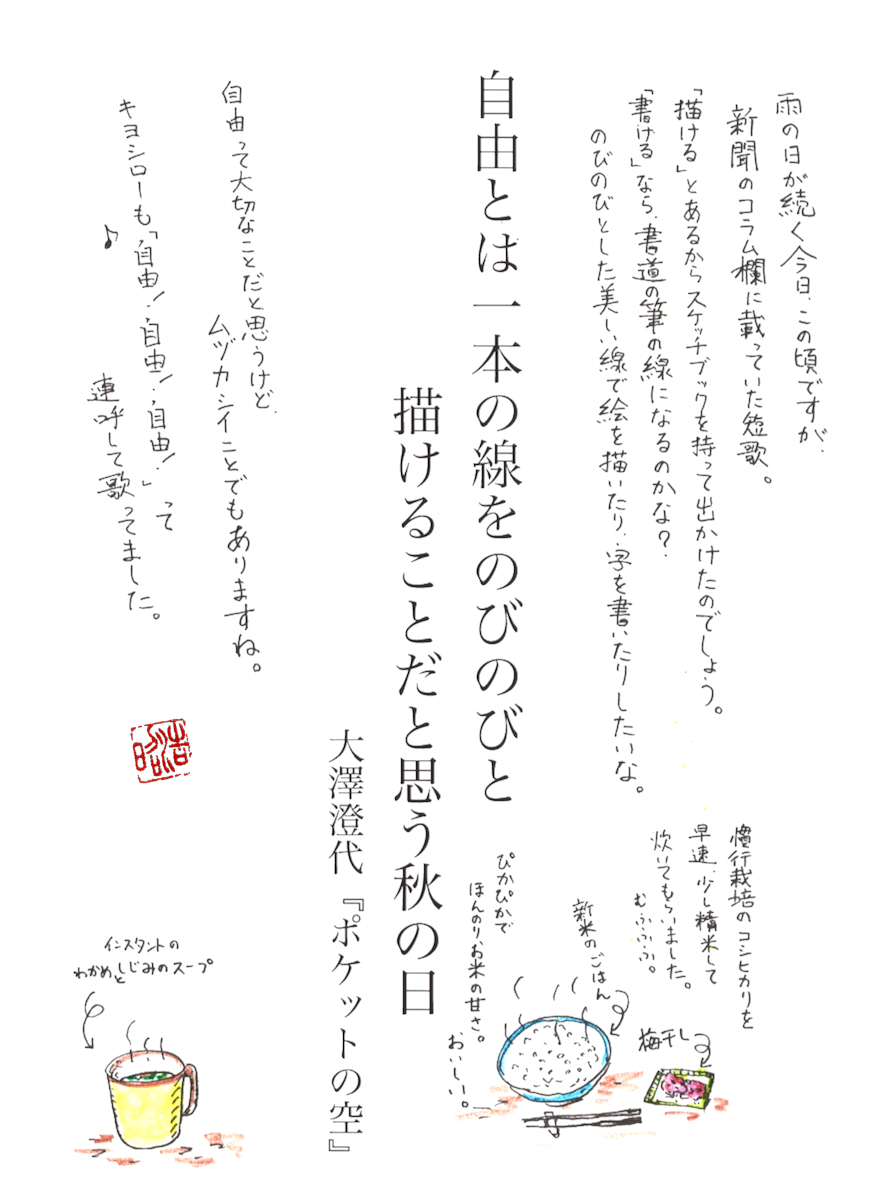 雨の日が続く今日、この頃ですが、
新聞のコラム欄に載っていた短歌。
「描ける」とあるからスケッチブックを持って出かけたのでしょう。
「書ける」なら、書道の筆の線になるのかな？
のびのびとした美しい線で絵を描いたり、字を書いたりしたいな。
自由とは一本の線をのびのびと
描けることだと思う秋の日
大澤澄代『ポケットの空』
自由って大切なことだと思うけど、
ムヅカシイことでもありますね。
キヨシローも「自由！自由！自由！」って
♪
連呼して歌ってました。
昭浩
慣行栽培のコシヒカリを
早速、少し精米して
炊いてもらいました。
むふふふふ。
新米のごはん
梅干し
ぴかぴかで
ほんのり、お米の甘さ。
おいしー。
インスタントの
わかめとしじみのスープ